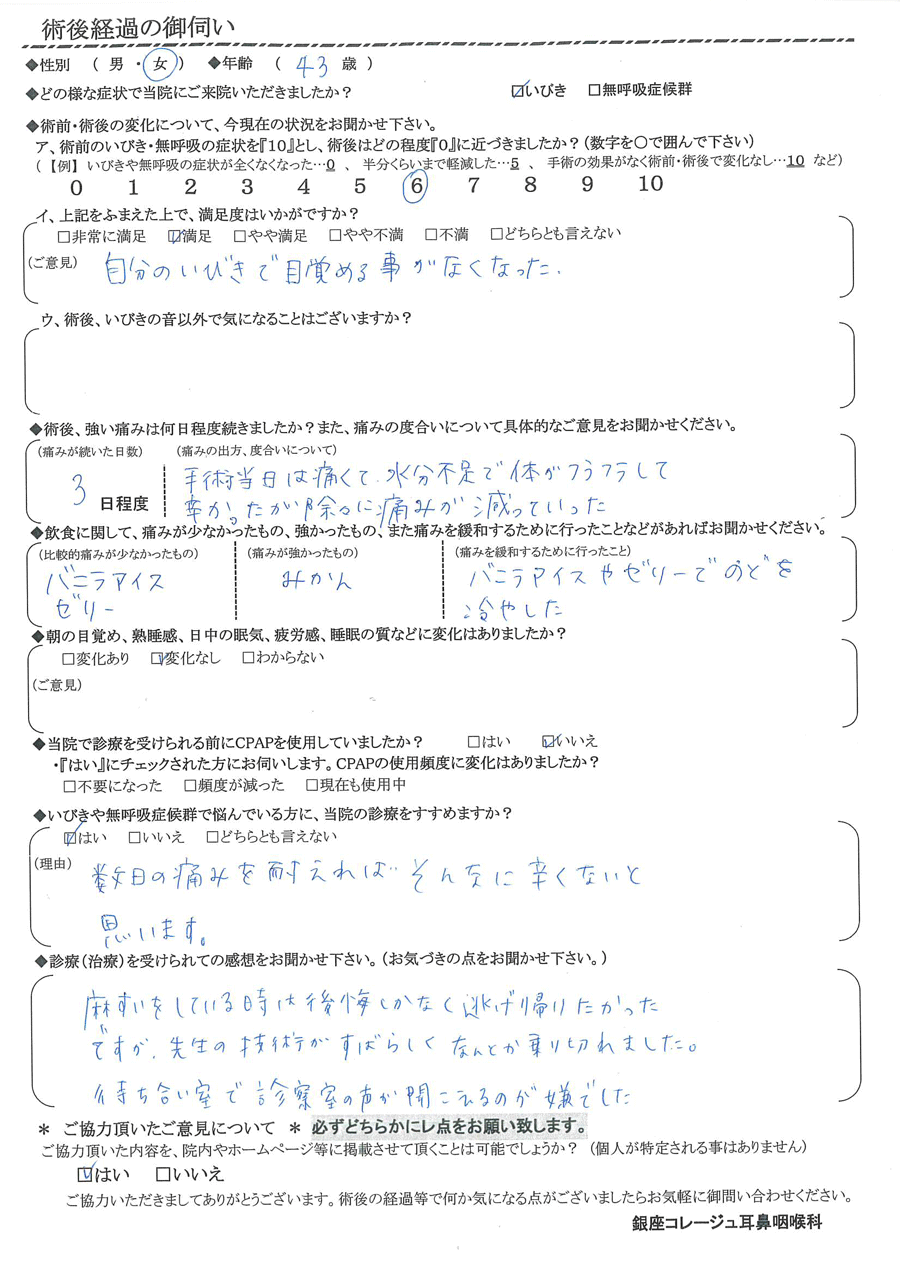 術後経過の御伺い
◆性別 ( 男 ・ 女 ) ◆年齢 ( 43 歳 )
◆どの様な症状で当院にご来院いただきましたか? ☑いびき □無呼吸症候群
◆術前・術後の変化について、今現在の状況をお聞かせ下さい。
ア、術前のいびき・無呼吸の症状を『10』とし、術後はどの程度『0』に近づきましたか?(数字を〇で囲んで下さい)
(【例】いびきや無呼吸の症状が全くなくなった…0 、 半分くらいまで軽減した…5 、 手術の効果がなく術前・術後で変化なし…10 など)
0 1 2 3 4 5 6 7 8 9 10
イ、上記をふまえた上で、満足度はいかがですか?
□非常に満足 ☑満足 □やや満足 □やや不満 □不満 □どちらとも言えない
(ご意見) 自分のいびきで目覚める事がなくなった.
ウ、術後、いびきの音以外で気になることはございますか?
◆術後、強い痛みは何日程度続きましたか?また、痛みの度合いについて具体的なご意見をお聞かせください。
(痛みが続いた日数) (痛みの出方、度合いについて)
3 日程度 手術当日は痛くて.水分不足で体がフラフラして
辛か。たが徐々に痛みが減っていった
◆飲食に関して、痛みが少なかったもの、強かったもの、また痛みを緩和するために行ったことなどがあればお聞かせください。
(比較的痛みが少なかったもの) (痛みが強かったもの) (痛みを緩和するために行ったこと)
バニラアイス みかん バニラアイスやゼリーでのどを
ゼリー 冷やした
◆朝の目覚め、熟睡感、日中の眠気、疲労感、睡眠の質などに変化はありましたか?
□変化あり ☑変化なし □わからない
(ご意見)
◆当院で診療を受けられる前にCPAPを使用していましたか? □はい ☑いいえ
・『はい』にチェックされた方にお伺いします。CPAPの使用頻度に変化はありましたか?
□不要になった □頻度が減った □現在も使用中
◆いびきや無呼吸症候群で悩んでいる方に、当院の診療をすすめますか?
☑はい □いいえ □どちらとも言えない
(理由) 数日の痛みを耐えれば そんなに辛くないと
思います。
◆診療(治療)を受けられての感想をお聞かせ下さい。(お気づきの点をお聞かせ下さい。)
麻すいをしている時は後悔しかなく逃げ帰りたかった
ですが、先生の技術がすばらしくなんとか乗り切れました。
待ち合い室で診察室の声が聞こえるのが嫌でした
＊ ご協力頂いたご意見について ＊ 必ずどちらかにレ点をお願い致します。
ご協力頂いた内容を、院内やホームページ等に掲載させて頂くことは可能でしょうか? (個人が特定される事はありません)
☑はい □いいえ
ご協力いただきましてありがとうございます。術後の経過等で何か気になる点がございましたらお気軽に御問い合わせください。
銀座コレージュ耳鼻咽喉科